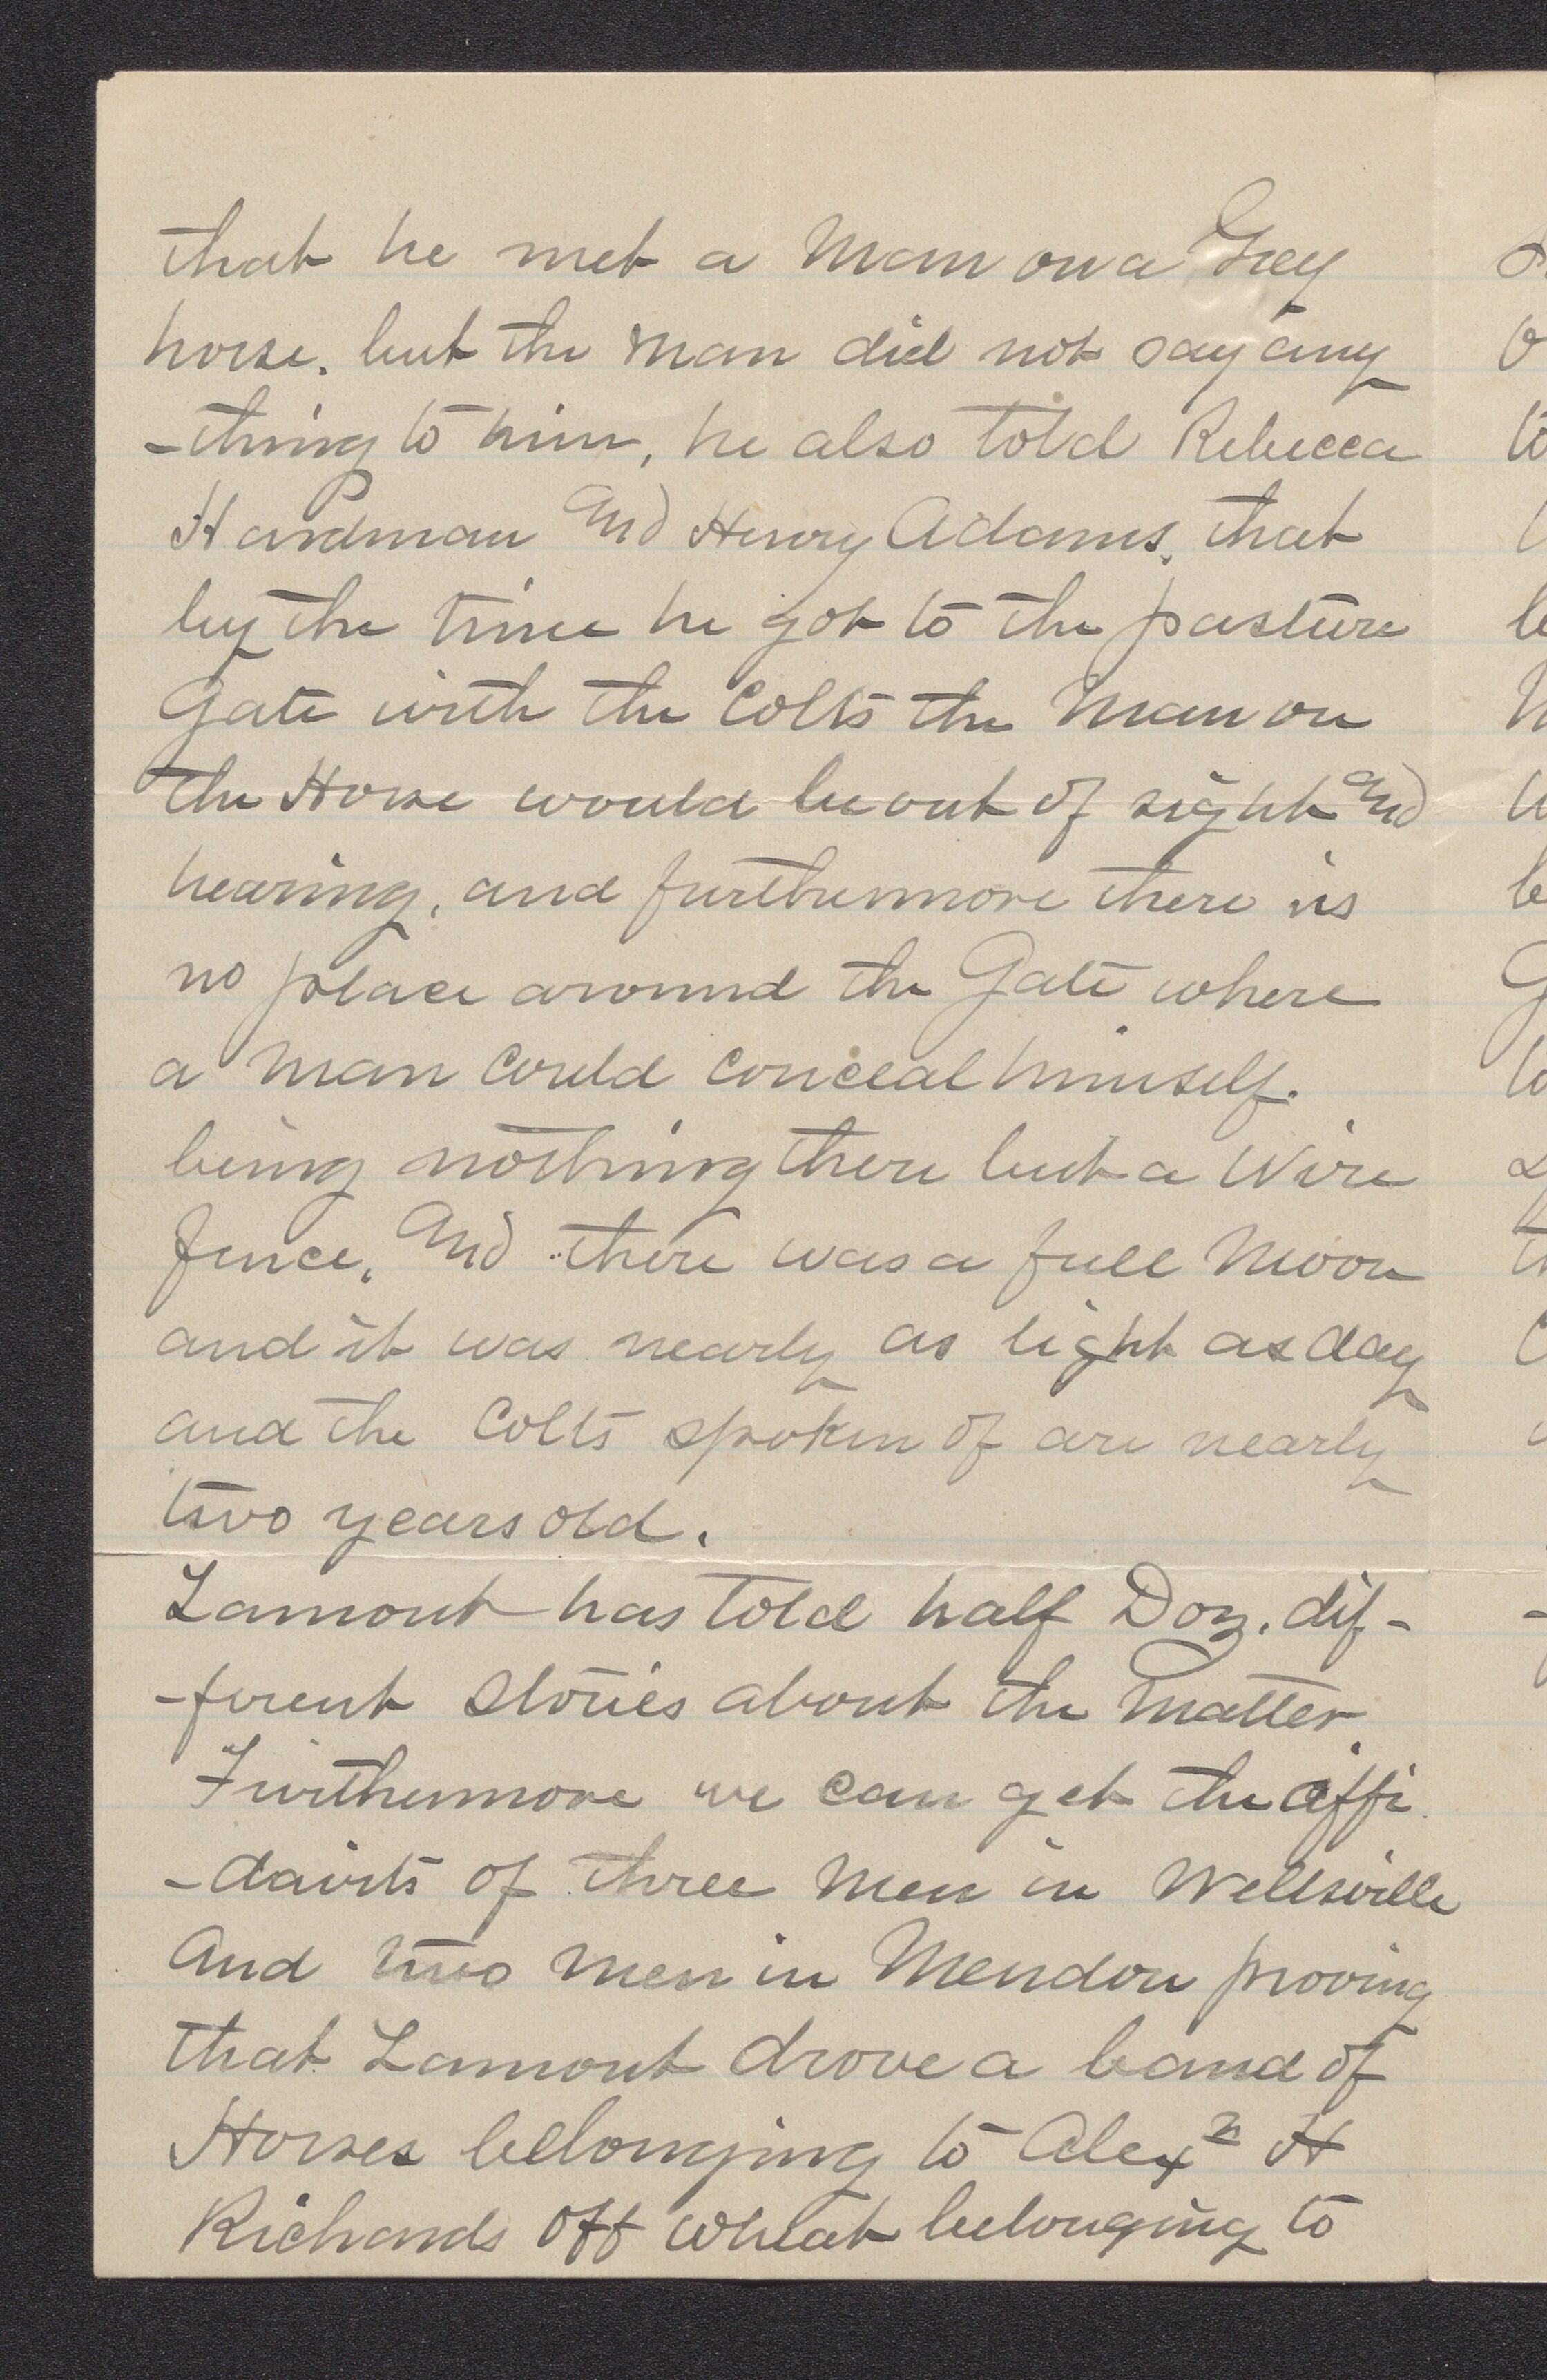 that he met a Man on a Grey
horse. but the Man did not say any
-thing to him, he also told Rebecca
Hardman And Henry Adams. that
by the time he got to the pasture
Gate with the Colts the Man on
the Horse would be out of sight And
hearing, and furthermore there is
no place around the Gate where
a Man Could Conceal himself.
being nothing there but a Wire
fence, And there was a full Moon
and it was nearly as light as day
and the Colts spoken of are nearly
two years old.
Lamont has told half Doz. dif-
-ferent Stories about the Matter
Furthermore we can get the affi
-davits of three Men in Wellsville
And two Men in Mendon proving
that Lamont drove a band of
Horses belonging to Alexr H
Richards Off Wheat belonging to